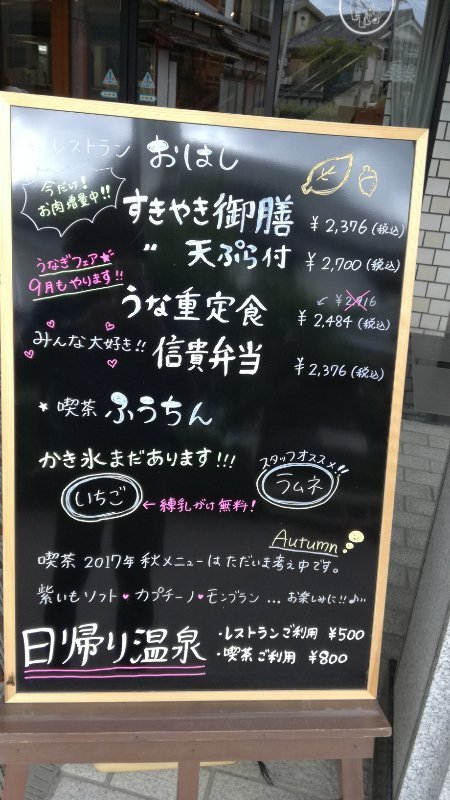 レストラン おはし
今だけ!
お肉増量中!!
すきやき御膳 ¥2,376(税込)
〃 天ぷら付 ¥2,700(税込)
うなぎフェア★
9月もやります!!
うな重定食 ↙ ¥2,916
¥2,484(税込)
みんな大好き!! 信貴弁当 ¥2,376(税込)
★喫茶 ふうちん
かき氷まだあります!!!
いちご ←練乳がけ無料!
スタッフオススメ!!
ラムネ
Autumn
喫茶 2017年 秋メニューはただいま考え中です。
紫いもソフト♥カプチーノ♥モンブラン … お楽しみに!!♪
日帰り温泉 ・レストランご利用 ¥500
・喫茶ご利用 ¥800